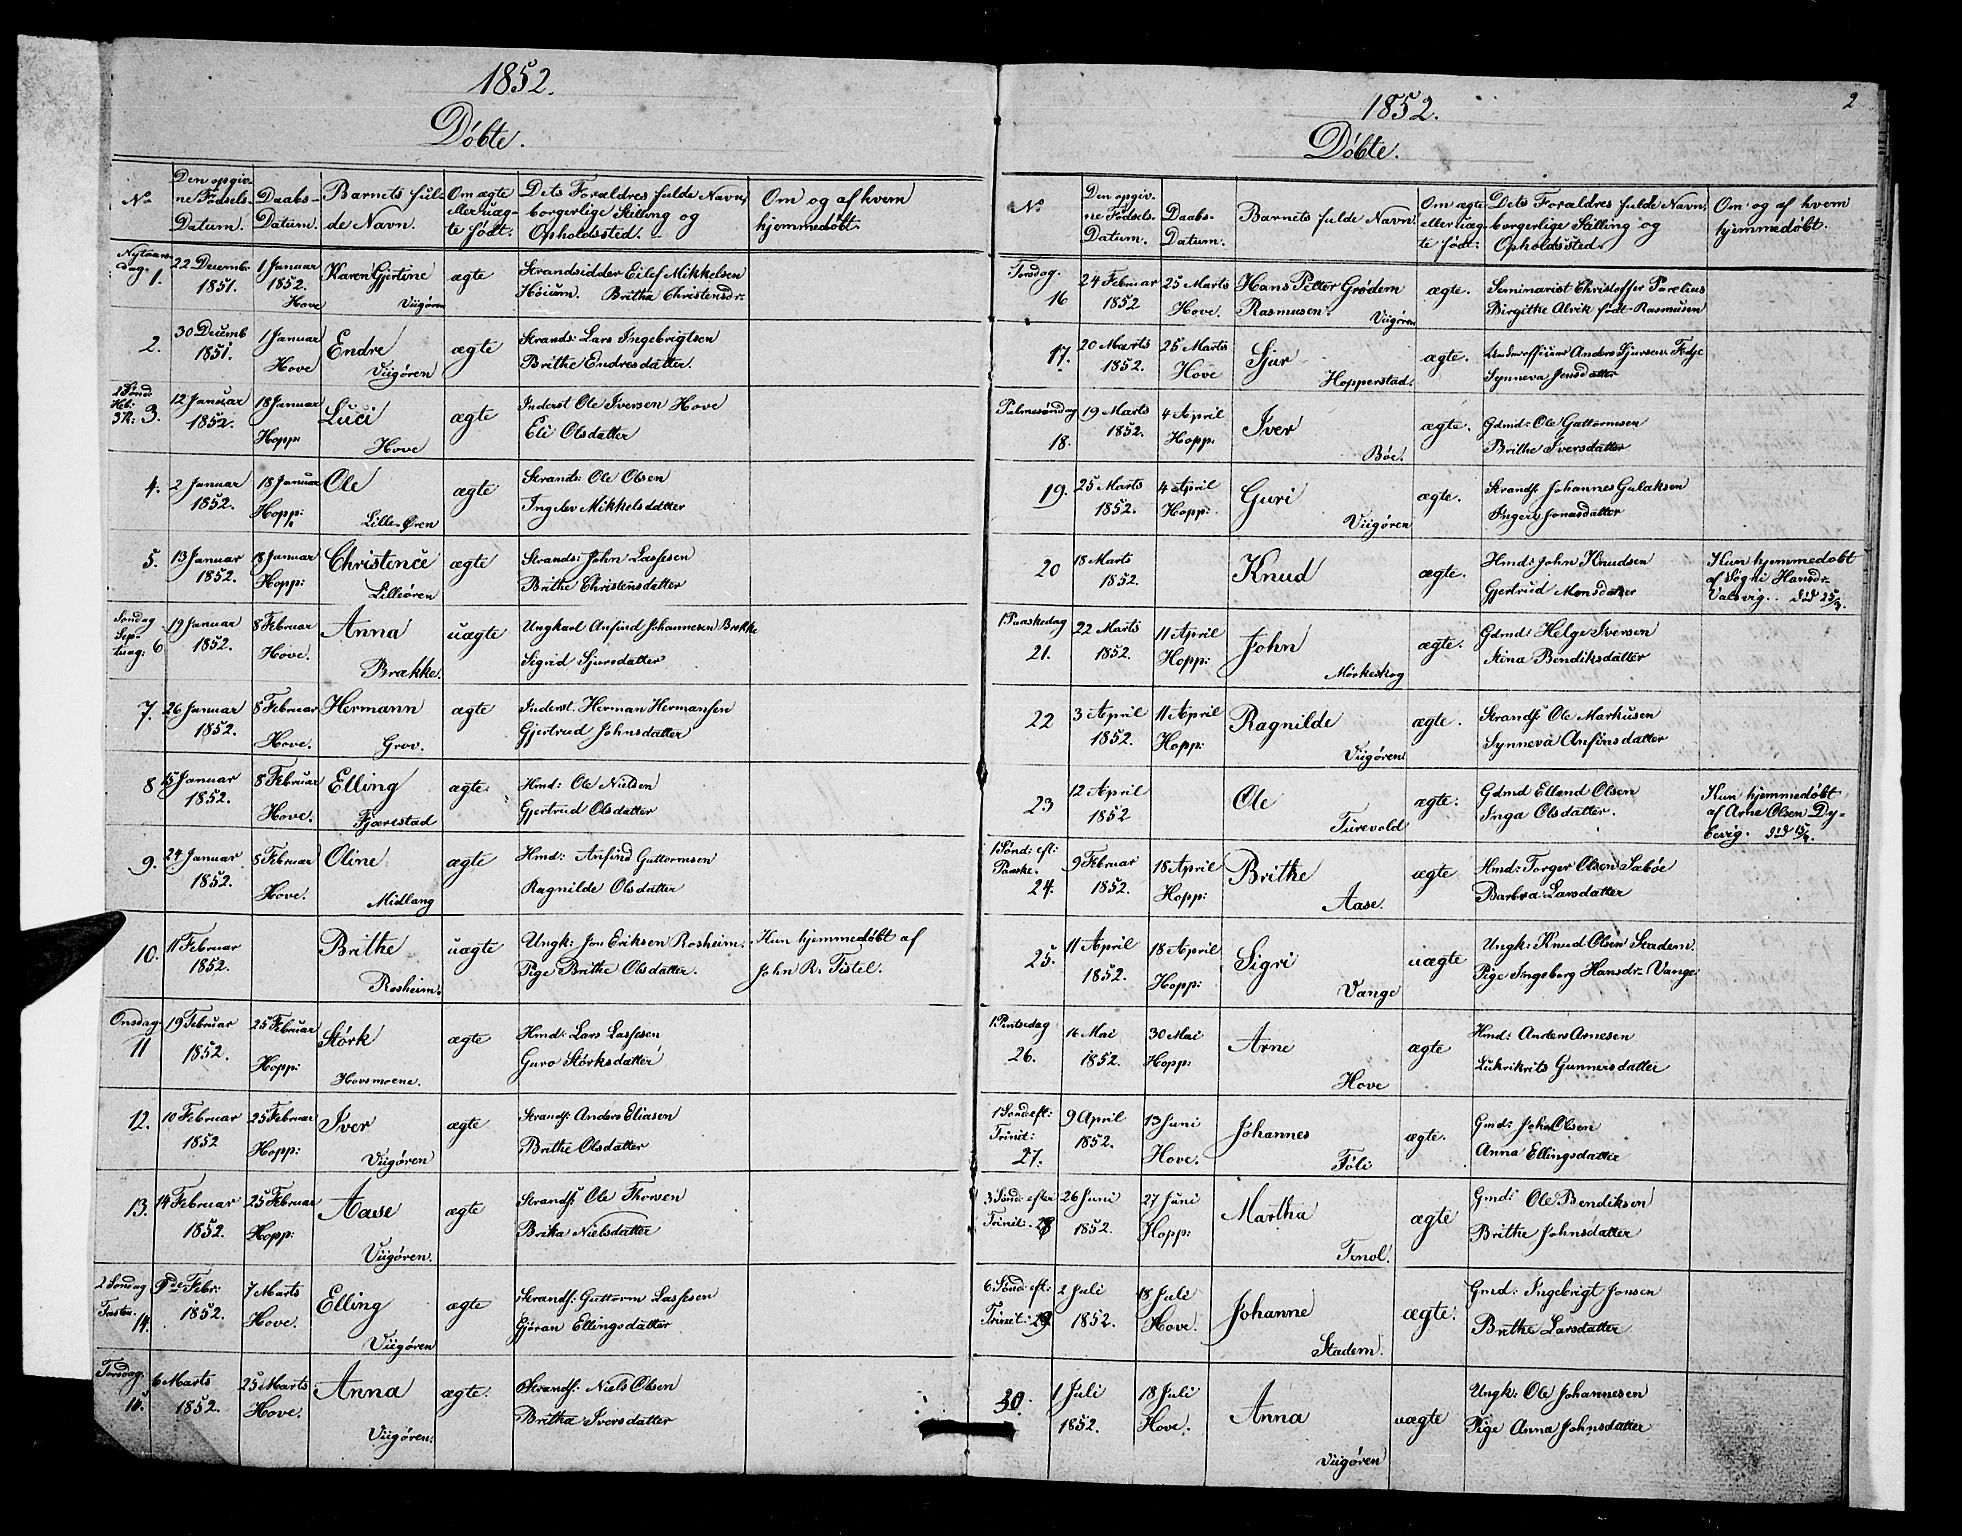 1852.
Döbte.
No
Den opgiv-
ne Födsels-
Datum.
Daabs-
Datum.
Barnets ful-
de Navn.
Om ægte
eller uæg-
te födt.
Dets Forældres fulde Navn,
borgerlige Stilling og
Opholdssted.
Om og af hvem
hjemmedöbt.
Nytaars-
dag. 1.
22 Decembr
1851.
1 Januar
1852.
Hove
Karen Gjertine
Viigören
ægte
Strandsidder Eilef Mikkelsen
Höium. Britha Christensdr.
2.
30 Decemb
1851.
1 Januar
Hove
Endre
Viigören
ægte
Strands: Lars Ingebrigtsen
Brithe Endresdatter.
3.
12 Januar
1852.
18 Januar
Hopp:
Luci
Hove
ægte
Inderst Ole Iversen Hove
Eli Olsdatter
4.
2 Januar
1852.
18 Januar
Hopp:
Ole
Lille-Ören
ægte
Strands: Ole Olsen
Inglev Mikkelsdatter
5.
13 Januar
1852.
18 Januar
Hopp:
Christence
Lilleören
ægte
Strands: John Lassesen
Brithe Christensdatter
Söndag
Sep-
tuag: 6
19 Januar
1852.
8 Februar
Hove.
Anna
Brække.
uægte
Ungkarl Anfind Johannesen Brække
Sigrid Sjursdatter
7.
26 Januar
1852.
8 Februar
Hove.
Hermann
Grov.
ægte
Inderst. Herman Hermansen
Gjertrud Johnsdatter
8
15 Januar
1852.
8 Februar
Hove.
Elling
Fjærestad
ægte.
Hmd: Ole Nielsen
Gjertrud Olsdatter
9.
24 Januar
1852.
8 Februar
Hove.
Oline
Midlang
ægte
Hmd: Anfind Guttormsen
Ragnilde Olsdatter
10.
11 Februar
1852.
Brithe
Rosheim.
uægte
Ungk: Jon Eriksen Rosheim.
Pige Brithe Olsdatter.
Kun hjemmedöbt af
John R. Tistel.
Onsdag
11
19 Februar
1852.
25 Februar
Hopp:
Störk
Hovsmoene.
ægte
Hmd: Lars Lassesen
Guro Störksdatter
12.
10 Februar
1852
25 Februar
Hopp:
Iver
Viigören
ægte
Strands: Anders Eliasen
Brithe Olsdatter
13.
14 Februar
1852.
25 Februar
Hopp:
Aase
Viigören.
ægte
Strands: Ole Thorsen
Brita Nielsdatter
2 Söndag
Fasten.
14.
9de Febr:
1852.
7 Marts
Hove.
Elling
Viigören
ægte
Strands: Guttorm Lassesen
Gjöran Ellingsdatter
Torsdag.
15.
6 Marts
1852.
25 Marts
Hove.
Anna
Viigören.
ægte.
Strands: Niels Olsen
Britha Iversdatter
2
1852.
Döbte.
No
Den opgiv-
ne Födsels-
Datum.
Daabs-
Datum.
Barnets fulde Navn.
Om ægte
eller uæg-
te födt:
Dets Forældres fulde Navn,
borgerlige Stilling og
Opholdssted.
Om og af hvem
hjemmedöbt.
Torsdag.
16
24 Februar
1852
25 Marts
Hove.
Hans Petter Grödem
Rasmusen.
Viigören
ægte.
Seminarist Christoffer Parelius
Birgithe Alvik födt Rasmusen
17.
20 Marts
1852.
25 Marts
Hove
Sjur
Hopperstad.
ægte.
Underofficier Anders Sjursen Fedje
Synneva Jensdatter
Palmesöndag
18.
19 Marts
1852.
4 April
Hopp:
Iver
Böe.
ægte.
Gdmd: Ole Guttormsen
Brithe Iversdatter
19.
25 Marts
1852.
4 April
Hopp:
Guri
Viigören
ægte.
Strands: Johannes Gulaksen
Ingeri Jonasdatter
20
18 Marts
1852.
Knud
ægte.
Hmd: John Knudsen
Gjertrud Monsdatter
Kun hjemmedöbt
af Sögni Hansdr.
Valsvig. död 25/3.
1 Paaskedag
21.
22 Marts
1852.
11 April
Hopp:
John
Mörkeskog
ægte.
Gdmd: Helge Iversen
Stina Bendiksdatter
22
3 April
1852.
11 April
Hopp:
Ragnilde
Viigören
ægte.
Strands: Ole Markusen
Synneva Anfinsdatter
23
12 April
1852
Ole
Turevold
ægte.
Gdmd Elland Olsen
Inga Olsdatter.
Kun hjemmedöbt
af Arne Olsen Dy-
bevig. död 15/4.
1 Sönd: eft:
Paaske.
24.
9 Februar
1852.
18 April
Hopp:
Brithe
Aase.
ægte
Hmd: Torger Olsen Sæböe
Barbra Larsdatter
25.
11 April
1852.
18 April
Hopp:
Sigri
Vange
uægte
Ungk: Knud Olsen Stadem.
Pige Ingeborg Hansdr. Vange
1 Pintsedag
26.
16 Mai
1852.
30 Mai
Hopp:
Arne
Hove
ægte
Hmd: Anders Arnesen
Gunnersdatter
1 Sönd: eft:
Trinit:
27.
9 April
1852.
13 Juni
Hove.
Johannes
Föli
ægte.
Gmd: John Olsen
Anna Ellingsdatter
3 Sönd: efter
Trinit: 28
26 Juni
1852.
27 Juni
Hopp:
Martha
Tenol.
ægte
Gmd: Ole Bendiksen
Brithe Johnsdatter
6 Sönd: eft:
Trinit: 29
2 Juli
1852.
18 Juli
Hove.
Johanne
Stadem.
ægte.
Gmd: Ingebrigt Jonsen
Brithe Larsdatter
30.
1 Juli
1852.
18 Juli
Hove.
Anna
Viigören
uægte
Ungk: Ole Johannesen
Pige Anna Johnsdatter